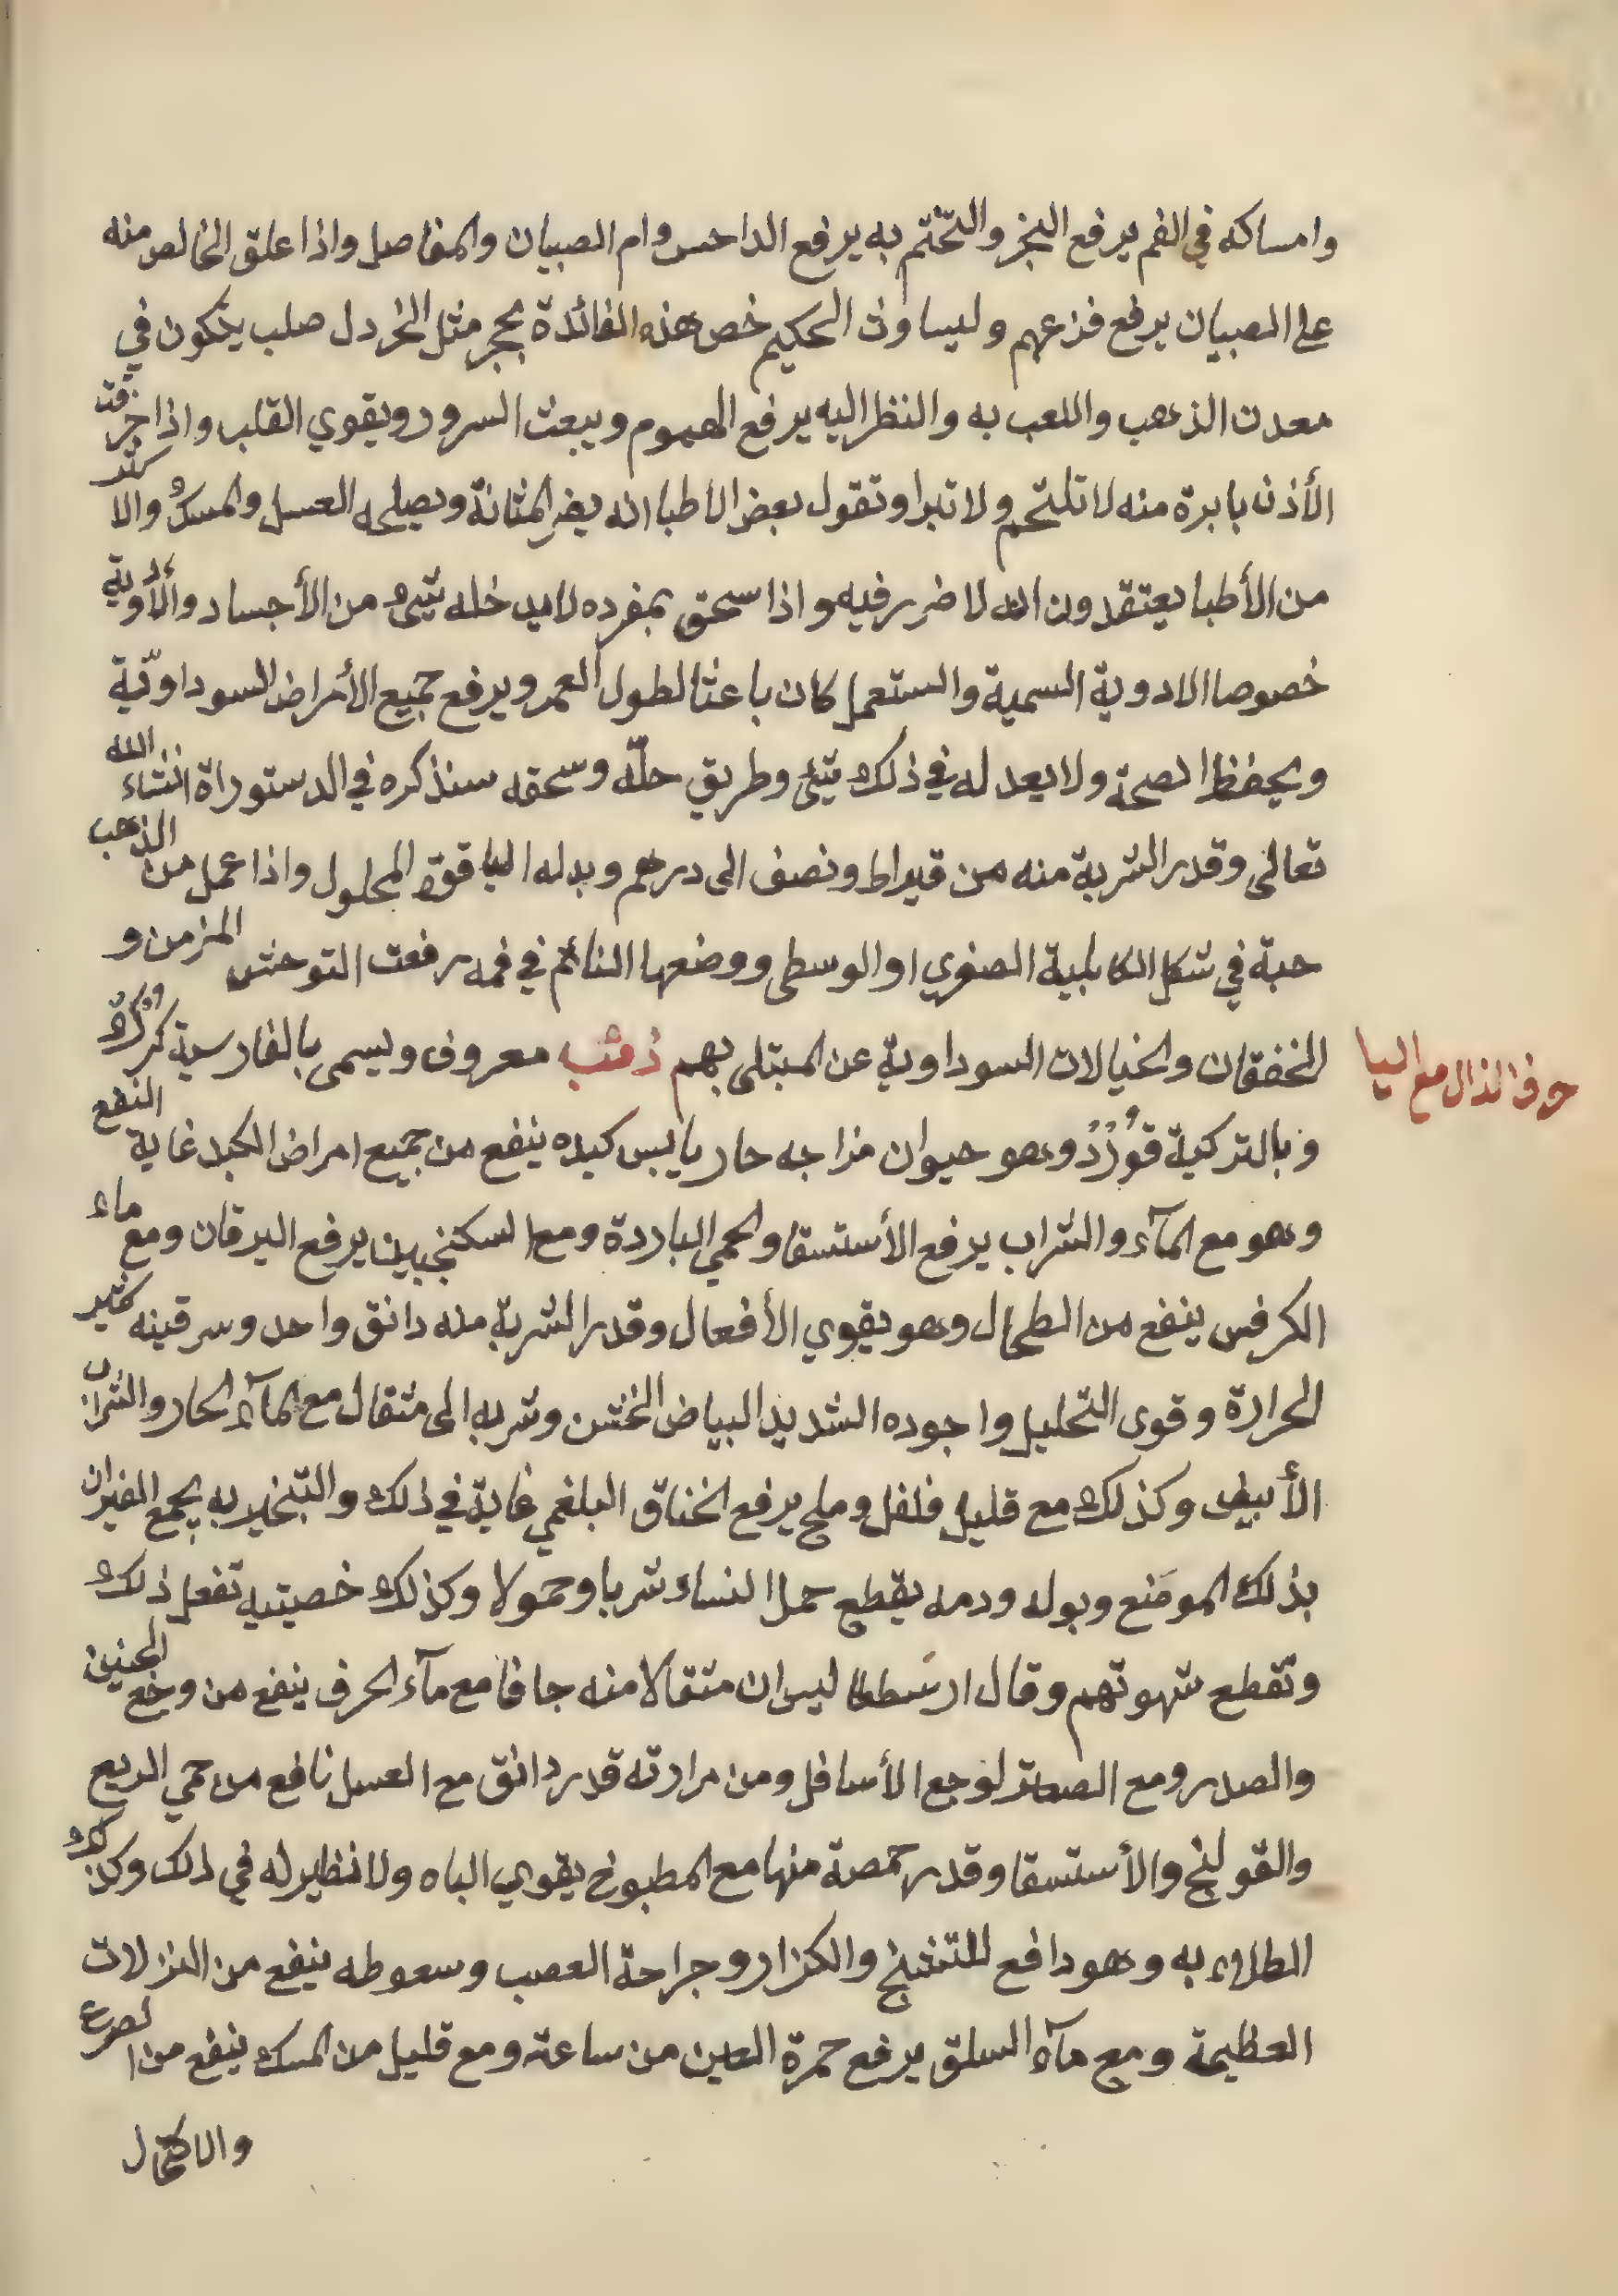 وامساكه في الفم يرفع البخر والتختم به يرفع الداحس وام الصبيان والمفاصل واذا علق الخالص منه
على الصبيان يرفع فزعهم وليساوث الحكيم خص هذه الفائدة بحجر مثل الخردل صلب يتكون في
معدن الذهب واللعب به والنظر اليه يرفع الهموم ويبعث السرور ويقوي القلب واذا خرقت
الأذن بابرة منه لا تلتحم ولا تبرا وتقول بعض الاطبا انه يضر المثانة ويصلحه العسل والمسك والاكثر
من الأطبا يعتقدون انه لا ضرر فيه واذا سحق بمفرده لا يدخله شيء من الأجساد والأدوية
خصوصا الادوية السمية والستعمل كان باعثا لطول العمر ويرفع جميع الأمراض السوداوّية
ويحفظ الصحة ولا يعدله في ذلك شيئ وطريق حلّه وسحقه سنذكره في الدستوراة انشاء الله
تعالى وقدر الشربة منه من قيراط ونصف الى درهم وبدله الياقوة المحلول واذا عمل من الذهب
حبة في شكل الكابلية الصغري او الوسطى ووضعها النائم في فمه رفعت التوحش المزمن و
الخفقان والخيالات السوداوية عن المبتلى بهم ذئب معروف ويسمى بالفارسية كرك
حرف الذال مع اليا
وبالتركية قوُرْدْ وهو حيوان مزاجه حار يابس كبده ينفع من جميع امراض الكبد غاية النفع
وهو مع المآء والشراب يرفع الأستسقا والحمي الباردة ومع السكنجبين يرفع اليرقان ومع ماء
الكرفس ينفع من الطحال وهو يقوي الأفعال وقدر الشربة منه دانق واحد وسرقينه كثير
الحرارة وقوى التحليل واجوده الشديد البياض الخشن وشربه الى مثقال مع المآء الحار والشراب
الأبيض وكذلك مع قليل فلفل وملح يرفع الخناق البلغمي غاية في ذلك والتبخير به يجمع الفيران
بذلك الموضع وبوله ودمه يقطع حمل النساء شربا وحمولا وكذلك خصيتيه تفعل ذلك
وتقطع شهوتهم وقال ارسططاليس ان مثقالا منه جافا مع مآء الحرف ينفع من وجع الجنين
والصدر ومع الصعتر لوجع الأسافل ومن مرارته قدر دانق مع العسل نافع من حمي الربع
والقولنج والأستسقا وقدر حمصة منها مع المطبوخ يقوي الباه ولا نظير له في ذلك وكذلك
الطلاء به وهو دافع للتشنج والكزاز وجراحة العصب وسعوطه ينفع من النزلات
العظيمة ومع مآء السلق يرفع حمرة العين من ساعته ومع قليل من المسك ينفع من الصرع
والاكتحال